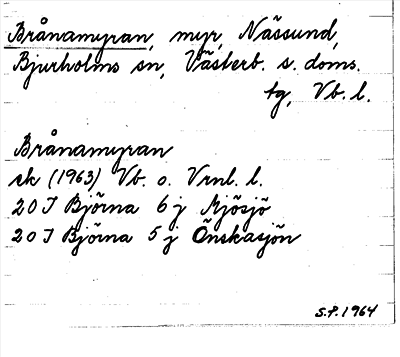 Brånamyran, myr, Nässund,
Bjurholms sn, Västerb. s. doms.
tg, Vb. l.
Brånamyran
ek (1963) Vb. o. Vrnl. l.
20 I Björna 6 j Mjösjö
20 I Björna 5 j Önskasjön
S.P. 1964